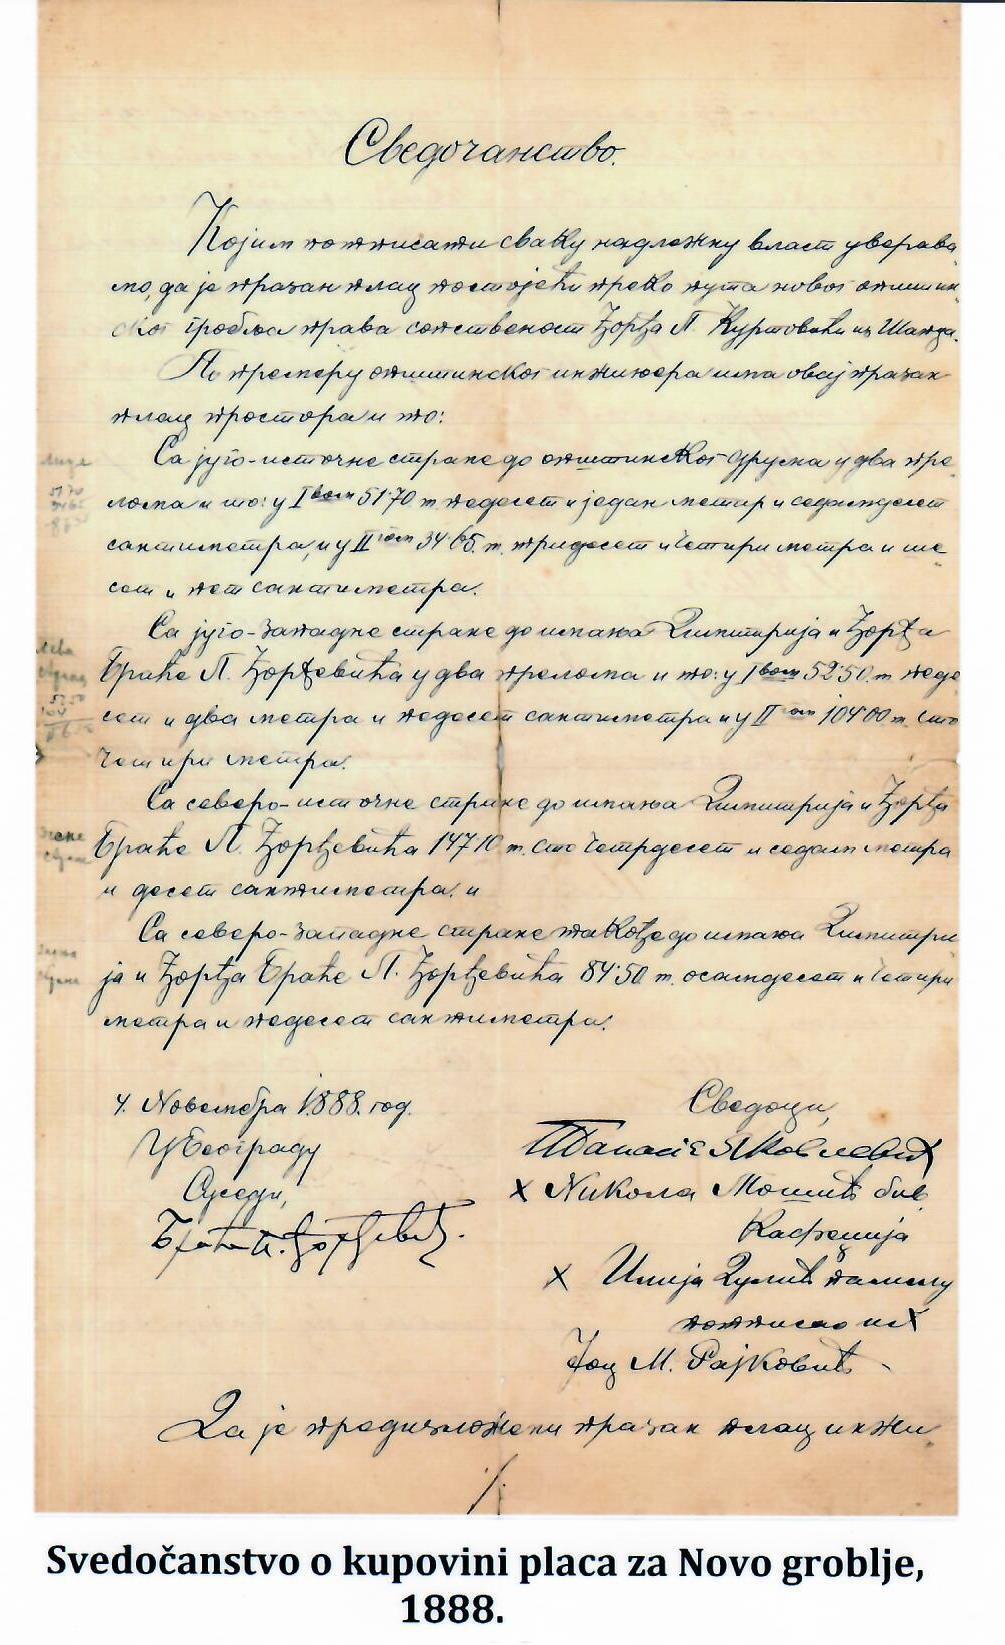 Сведочанство.
Којим потписати сваку надлежну власт уверава-
мо, да је празан плац постојећи преко пута новог општин-
ског гробља права сопственост Ђорђа П. Куртовића из Шапца.
По премеру општинског инжињера има овај празан
плац простора и то:
Са југо-источне стране до општинског друма у два пре-
лома и то: у I вом 51·70 m. педесет и један метар и седамдесет
сантиметра, и у II гом 34·65. m. тридесет и четири метра и ше-
сет и пет сантиметра.
Са југо-западне стране до имања Димитрија и Ђорђа
браће П. Ђорђевића у два прелома и то: у I вом 52·50. m. педе-
сет и два метра и педесет сантиметра и у II гом 104·00 m. сто
четири метра.
Са северо-источне стране до имања Димитрија и Ђорђа
браће П. Ђорђевића 147·10 m. сто четрдесет и седам метра
и десет сантиметра. и
Са северо-западне стране такође до имања Димитри-
ја и Ђорђа браће П. Ђорђевића 84·50 m. осамдесет и четири
метра и педесет сантиметра.
4. Новембра 1888. год.
У Београду
Суседи,
Браћа П. Ђорђевић.
Сведоци,
Атанасіе Яковлевић
× Никола Мошић бив.
кафеџија
× Илија
потписао их
Јоц М. Рајковић
Да је предизложени празан плац инжи-
Svedočanstvo o kupovini placa za Novo groblje,
1888.